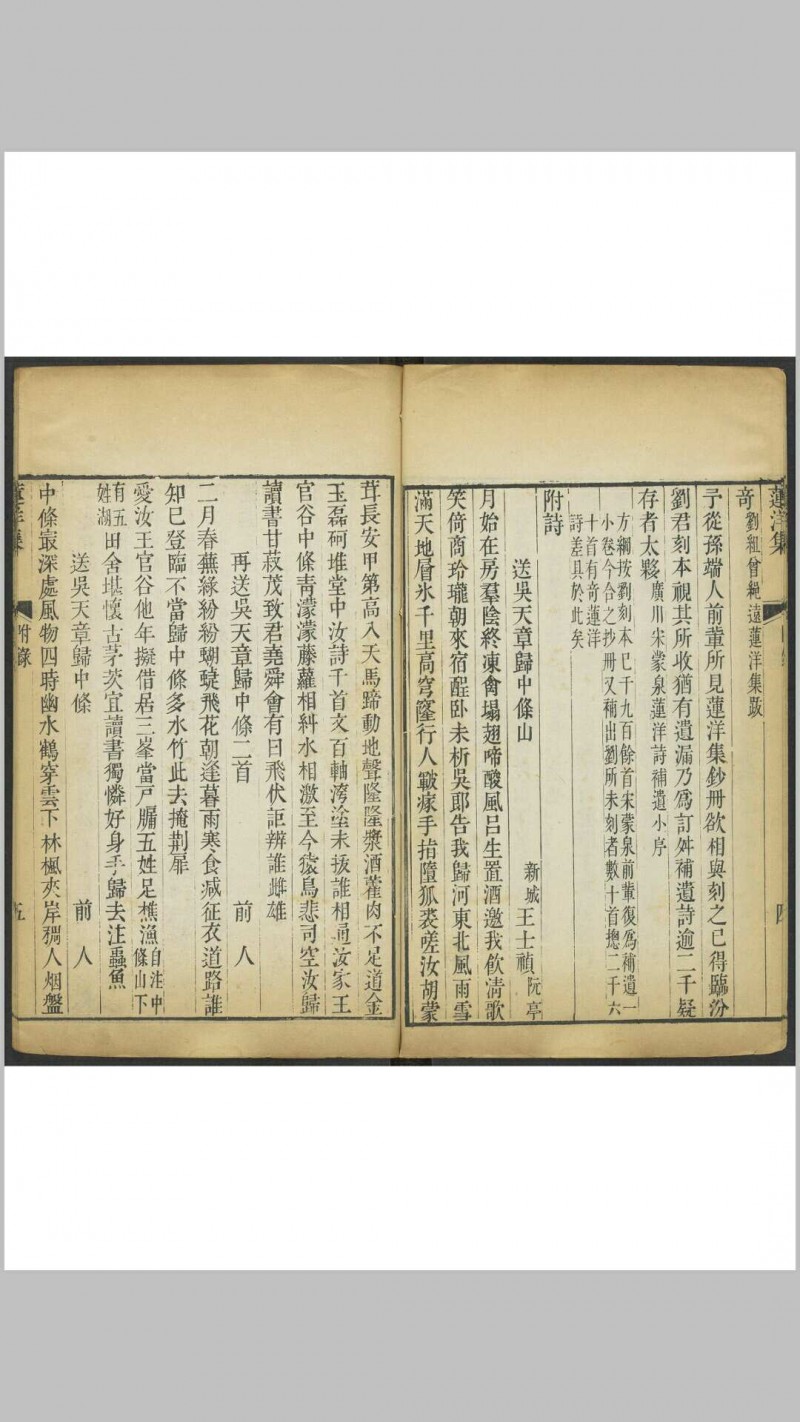 蓮洋集
四
奇劉組曾紀遠蓮洋集跋
予從孫端人前輩所見蓮洋集鈔冊欲相與刻之已得臨汾
劉君刻本視其所收猶有遺漏乃爲訂舛補遺詩逾二千疑
存者太夥廣川宋蒙泉蓮洋詩補遺小序
方綱按劉刻本已千九百餘首宋蒙泉前輩復爲補遺一
小卷今合之抄冊又稱出劉所未刻者數十首摠二千六
十首有奇蓮洋
詩差具於此矣
附詩
送吳天章歸中條山 新城王士禎阮亭
月始在房羣陰終凍禽塌翅啼酸風呂生置酒邀我飲淸歌
笑倚商玲瓏朝來宿酲卧未析吳郎告我歸河東北風雨雪
滿天地層氷千里高穹窿行人皸瘃手指墮狐裘嗟汝胡蒙
茸長安甲第高入天馬蹄動地聲隆隆漿酒藿肉不足道金
玉磊砢堆堂中汝詩千首文百軸滂塗未拔誰相通汝家王
官谷中條靑濛濛藤蘿相糾水相激至今猿鳥悲司空汝歸
讀書甘菽茂致君堯舜會有日飛伏詎辨誰雌雄
再送吳天章歸中條二首 前人
二月春蕪綠紛紛蝴蝶飛花朝逢暮雨寒食減征衣道路誰
知已登臨不當歸中條多水竹此去掩荆扉
愛汝王官谷他年擬借居三峯當戶牖五姓足樵漁自注中條山下
有五姓湖田舍堪懷古茅茨宜讀書獨憐好身手歸去注蟲魚
送吳天章歸中條 前人
中條㝡深處風物四時幽水鶴穿雲下林楓夾岸稠人烟盤
蓮洋集
附錄
五